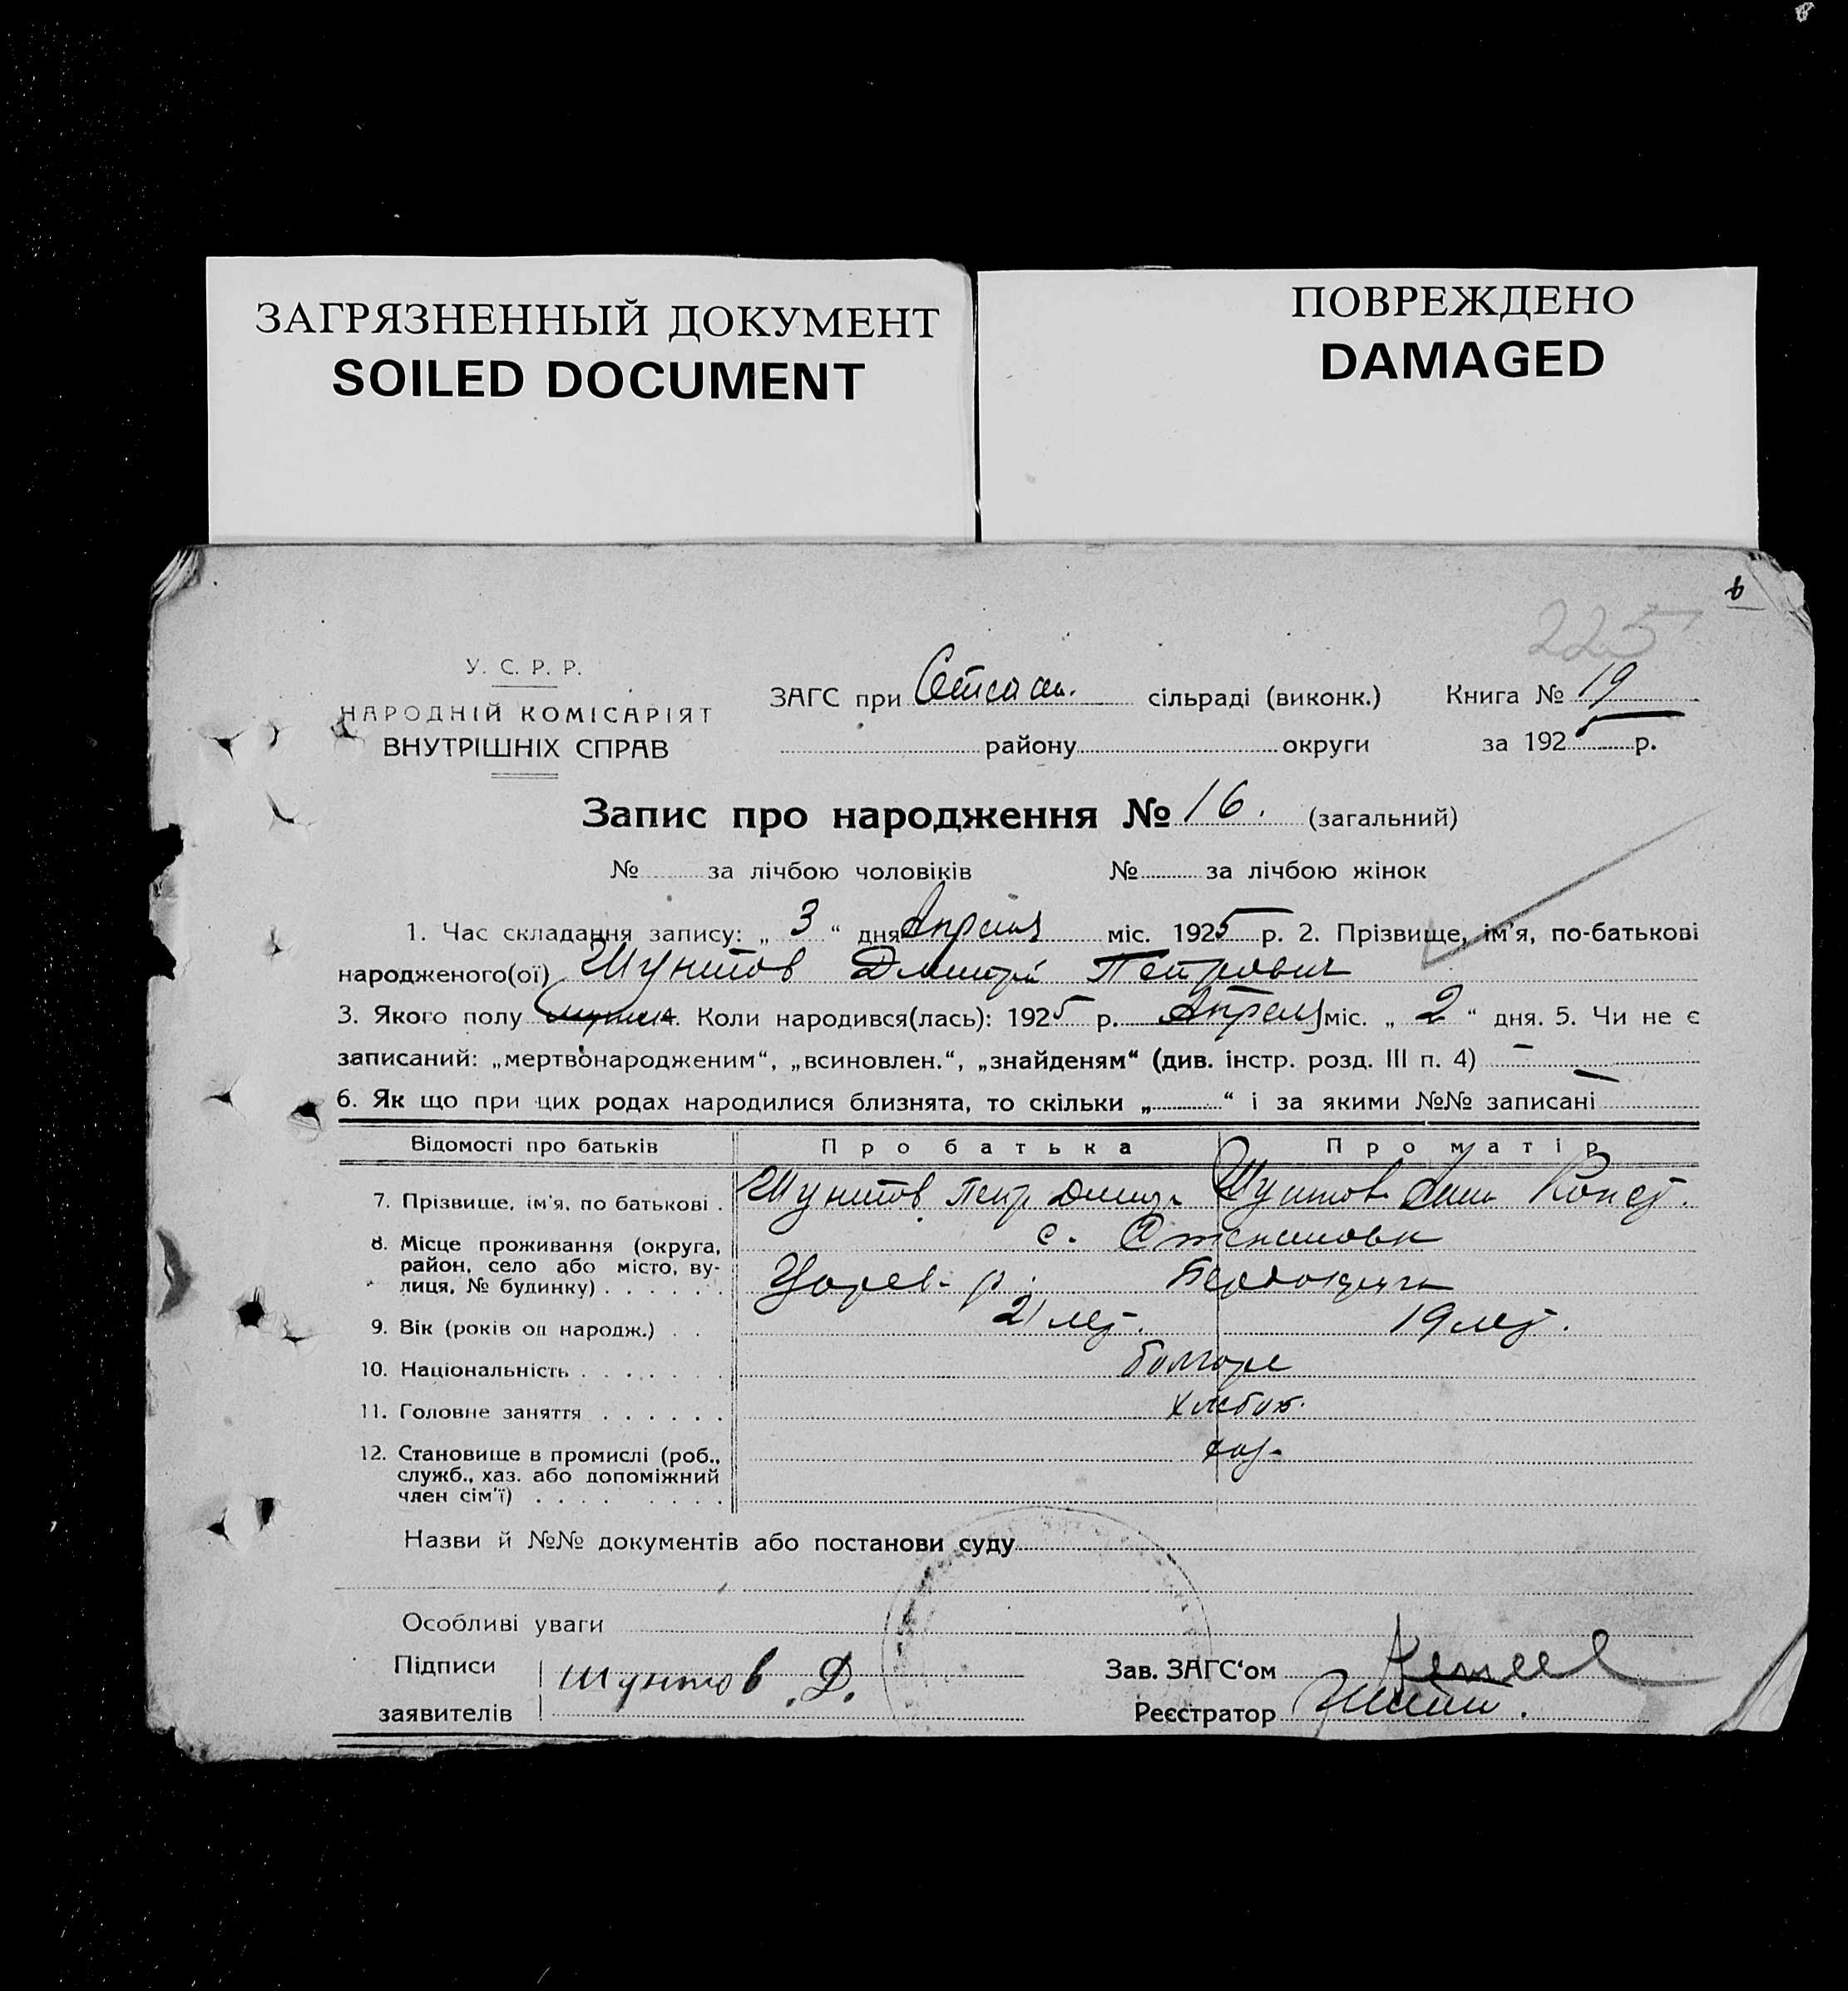 ЗАГРЯЗНЕННЫЙ ДОКУМЕНТ
SOILED DOCUMENT
ПОВРЕЖДЕНО
DAMAGED
6
225
У. С. Р. Р.
НАРОДНІЙ КОМІСАРІЯТ
ВНУТРІШНІХ СПРАВ
ЗАГС при сільраді (виконк.) Книга № 19
району округи за 1925 р.
Запис про народження № 16. (загальний)
№ за лічбою чоловіків № за лічбою жінок
1. Час складання запису: „ 3 “ дня Апреля міс. 1925 р. 2. Прізвище, ім'я, по-батькові
народженого(ої) Шунтов Дмитрий Петрович
3. Якого полу мужск 4. Коли народився(лась): 1925 р. Апреля міс. „ 2 “ дня. 5. Чи не є
записаний: „мертвонародженим“, „всиновлен.“, „знайденям“ (див. інстр. розд. III п. 4) –
6. Як що при цих родах народилися близнята, то скільки „ “ і за якими №№ записані –
Відомості про батьків Про батька Про матір
7. Прізвище, ім'я, по батькові . Шунтов Петр Шунтов Конст.
8. Місце проживання (округа, с.
район, село або місто, ву-
лиця, № будинку) . . . . . . р.
9. Вік (років од народж.) . . 21 лет. 19 лет.
10. Національність . . . . . . . болгаре
11. Головне заняття . . . . . . хлебоп.
12. Становище в промислі (роб.,
служб., хаз. або допоміжний
член сім'ї) . . . . . . . .
Назви й №№ документів або постанови суду
Особливі уваги
Підписи Шунтов Д.
заявителів
Зав. ЗАГС'ом
Реєстратор